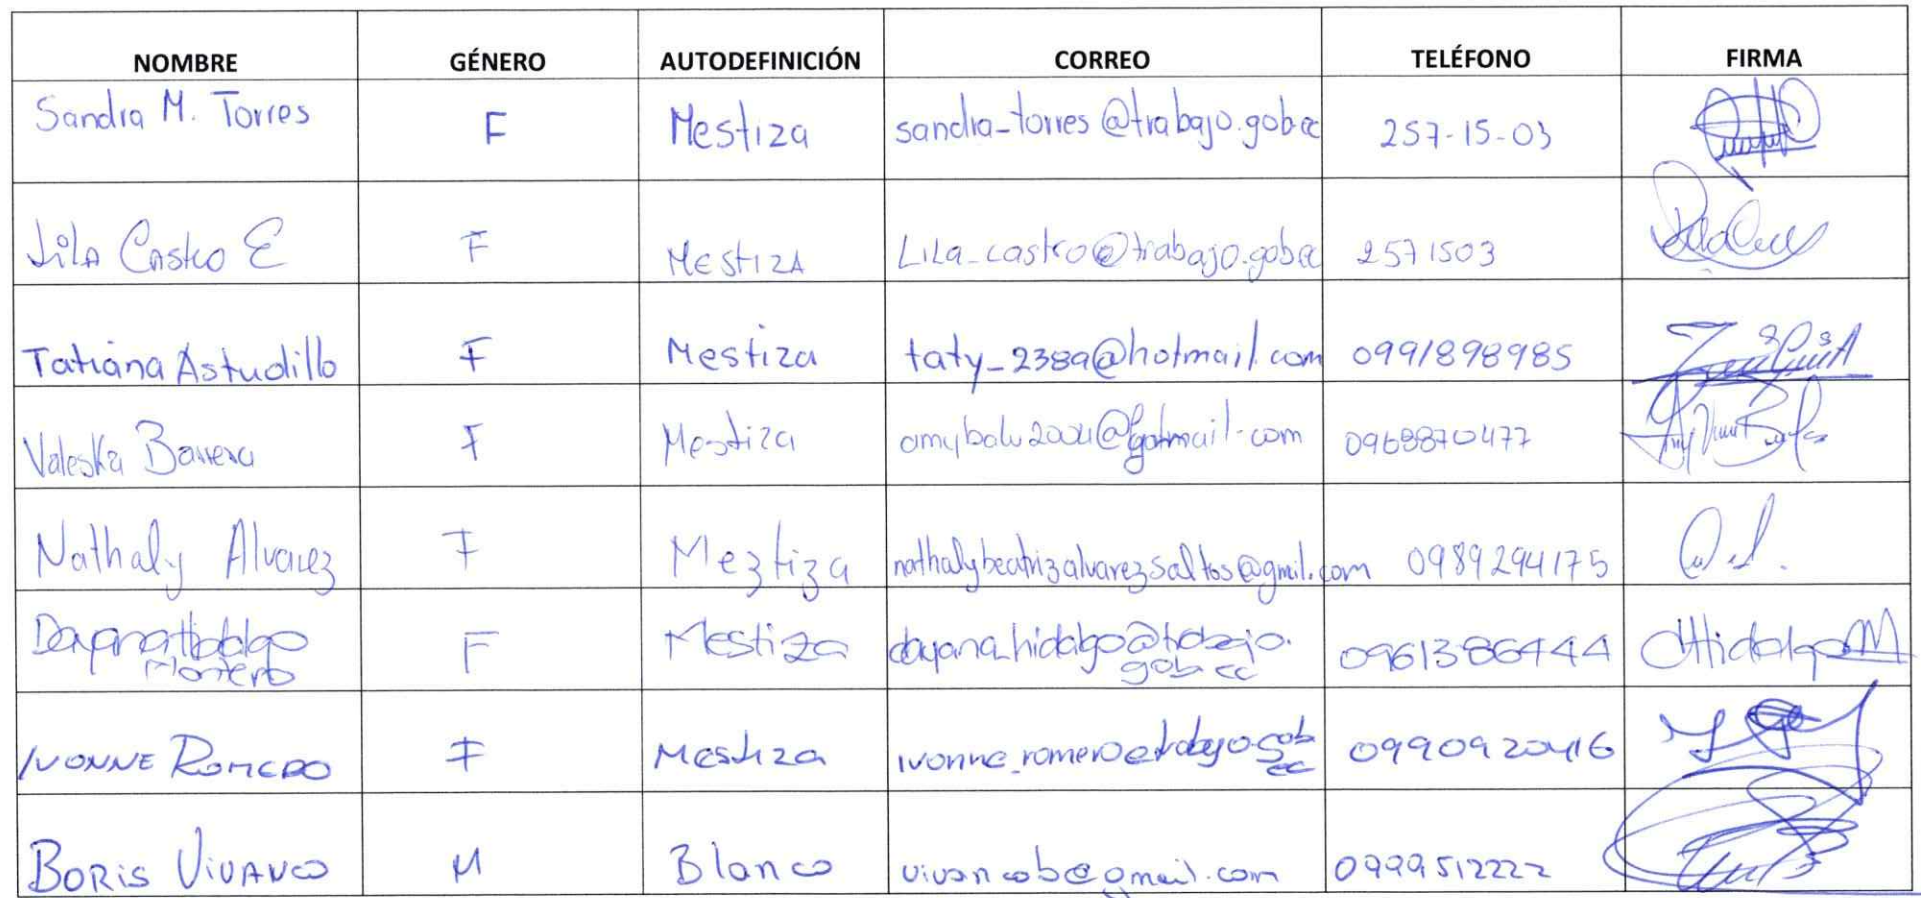 NOMBRE GÉNERO AUTODEFINICIÓN CORREO TELÉFONO FIRMA
Sandra M. Torres F Mestiza sandra_torres@trabajo.gob.ec 257-15-03
Lila Castro E F Mestiza Lila_castro@trabajo.gob.ec 2571503
Tatiana Astudillo F Mestiza taty_2389@hotmail.com 0991898985
Valeska Barrera F Mestiza 0968870477
Nathaly Alvarez F Meztiza nathalybeatrizalvarezsaltos@gmil.com 0989294175
Dayana Hidalgo F Mestiza dayana_hidalgo@trabajo. 0961386444 DHidalgoM
Montero gob.ec
IVONNE ROMERO F Mestiza ivonne_romero@trabajo.gob 0990920416
ec
BORIS VIVANCO M Blanco vivancob@gmail.com 0999512222